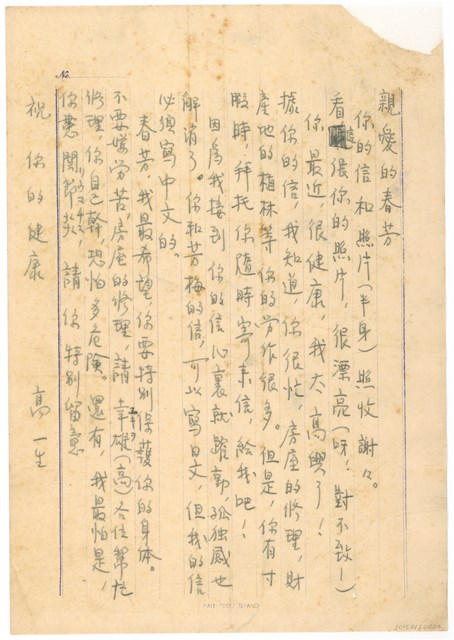 No.
親愛的春芳
你的信和照片(半身)照收謝々。
看這張你的照片,很漂亮(呀!對不致!)
你最近很健康,我太高興了!
據你的信,我知道,你很忙,房屋的修理,財
產地的植林等你的勞作很多。但是,你有寸
暇時,拜托你隨時寄來信,給我吧!
因為我接到你的信心裏就踴躍,孤独感也
解消了。你和芳梅的信,可以寫日文,但我的信
必須寫中文的。
春芳,我最希望,你要特別保護你的身体。
不要嫌勞苦,房屋的修理,請幸雄(高)各位幫忙
修理,你自己幹,恐怕多危險。還有,我最怕是,
你患關節炎,請你特別留意.
祝你的健康
高一生